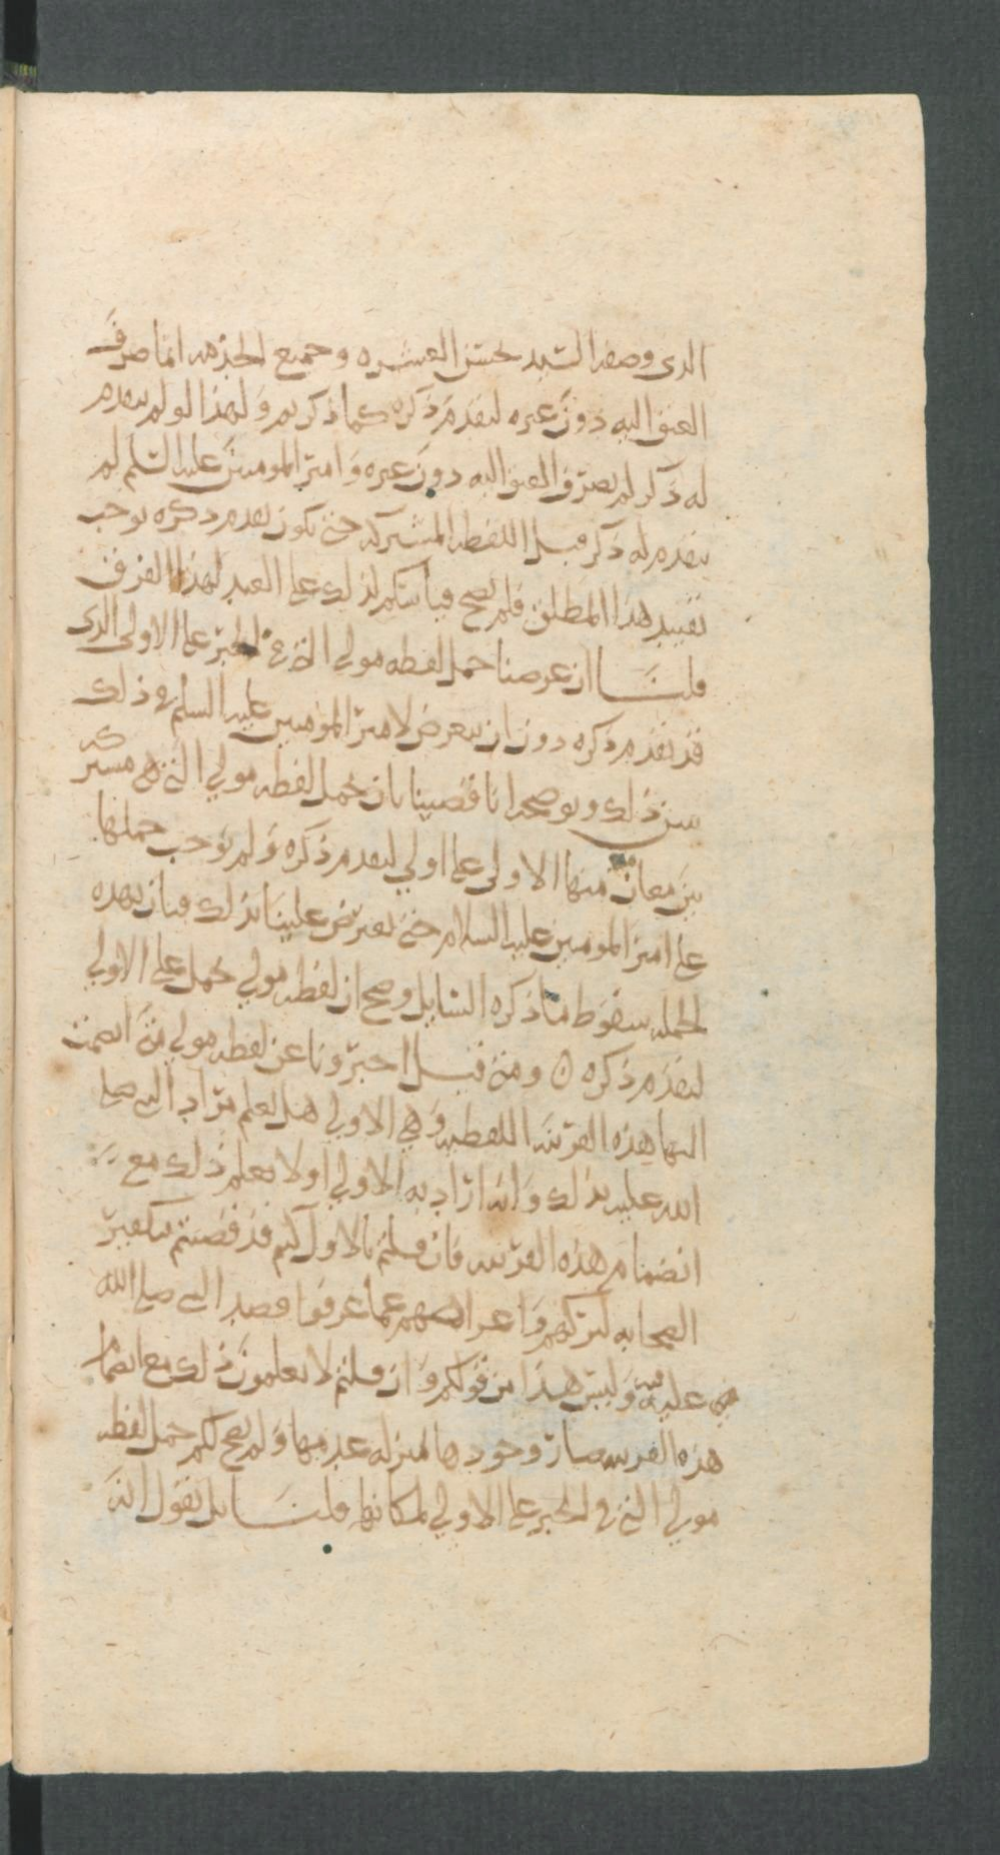 الذي وصفه السيد بحسن العشره وجميع الخدمه انما صرف
العتق اليه دون غيره لتقدم ذكره كما ذكرتم ولهذا لو لم يتقدم
له ذكر لم يصرف العتق اليه دون غيره وامير المومنين عليه السلم لم
يتقدم له ذكر قبل اللفظه المشتركه حتى يكون تقدم ذكره يوجب
تقييد هذا المطلق فلم يصح قياسكم لذلك على العبد لهذا الفرق
قلنا ان غرضنا حمل لفظه مولى التي في الخبر على الاولى الذي
قد تقدم ذكره دون ان نتعرض لامير المؤمنين عليه السلم في ذلك
يبين ذلك ويوضحه انا قضينا بان تحمل لفظه مولى التي هي مشتركه
بين معان منها الاولى على اولى لتقدم ذكره ولم نوجب حملها
على امير المومنين عليه السلام حتى تعترض علينا بذلك فبان بهذه
الجمله سقوط ما ذكره السايل وصح ان لفظه مولى تحمل على الاولى
لتقدم ذكره ٥ ومتى قيل اخبرونا عن لفظه مولى متى انضمت
اليها هذه القرينه اللفظيه وهي الاولى هل يعلم مراد النبي صلى
الله عليه بذلك وانه اراد به الاولى او لا يعلم ذلك مع
انضمام هذه القرينه فان قلتم بالاول كنتم قد قضيتم بتكفير
الصحابه لتركهم واعراضهم عما عرفوا قصد النبي صلى الله
عليه فيه وليس هذا من قولكم وان قلتم لا يعلمون ذلك مع انضمام
هذه القرينه صار وجودها بمنزله عدمها ولم يصح لكم حمل لفظه
مولى التي في الخبر على الاولى لمكانها قلنا بل نقول انه